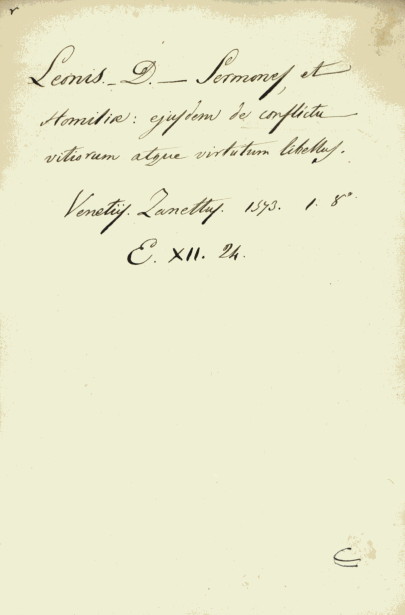 Leonis. D. — Sermones, et
Homiliæ: ejusdem de conflictu
vitiorum atque virtutum libellus.
Venetijs. Zanettus. 1573. 1. 8°.
E. XII. 24.
C